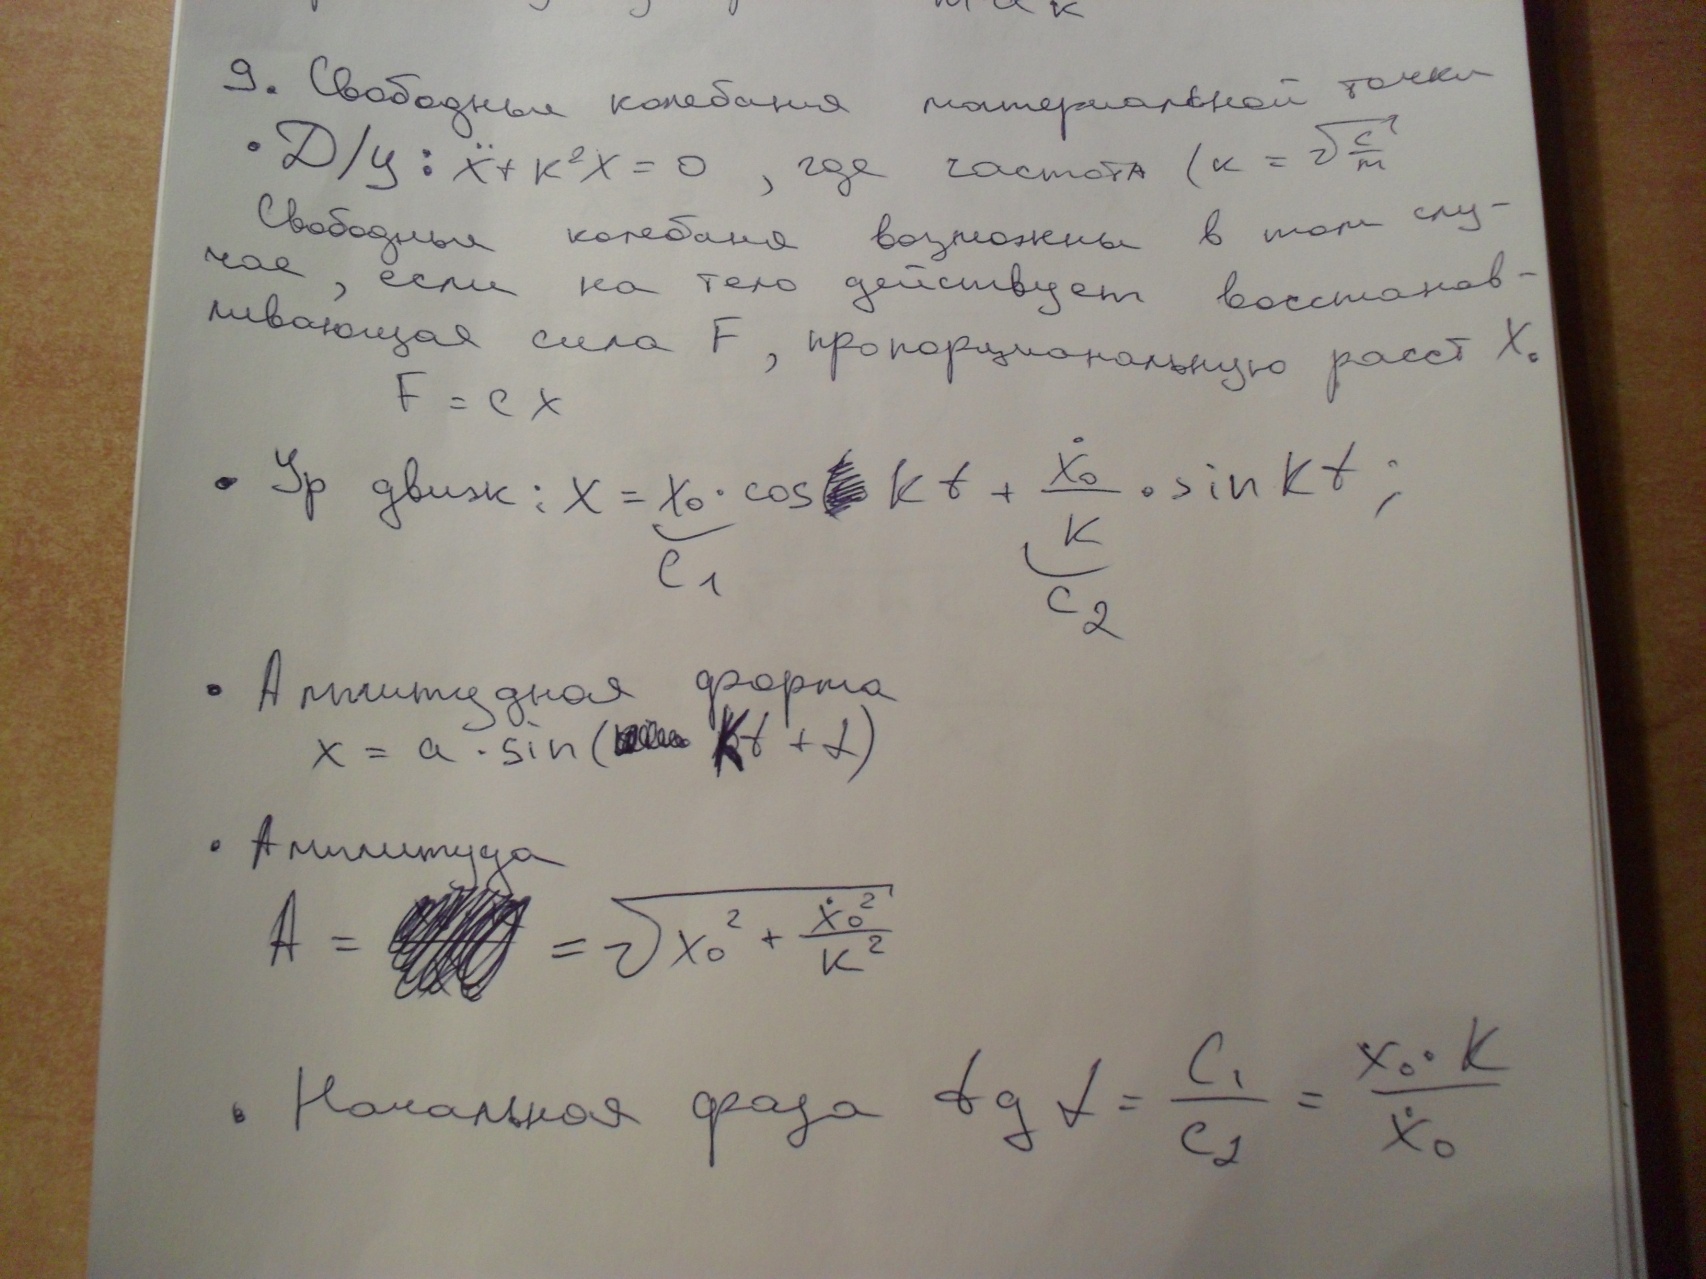 9. Свободные колебания материальной точки
• Д/у: ẍ + k²x = 0, где частота (k = √(c/m)
Свободные колебания возможны в том слу-
чае, если на тело действует восстанав-
ливающая сила F, пропорциональную расст X.
F = cx
• Ур движ: x = x₀ · cos kt + ẋ₀/k · sin kt;
C₁ C₂
• Амплитудная форма
x = a · sin(kt + α)
• Амплитуда
A = = √(x₀² + ẋ₀²/k²)
• Начальная фаза tg α = C₁/C₂ = x₀·k/ẋ₀